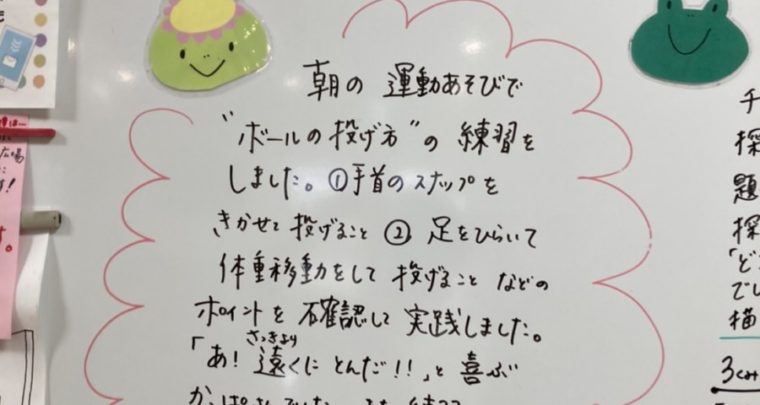 朝の 運動あそびで
"ボールの投げ方"の 練習を
しました。①手首のスナップを
きかせて投げること ② 足をひらいて
体重移動をして 投げること などの
ポイントを 確認して 実践しました。
さっきより
「あ! 遠くに とんだ!!」と 喜ぶ
広場
に
す!
。
チ
探
題
探
「ど
でし
描
3cm